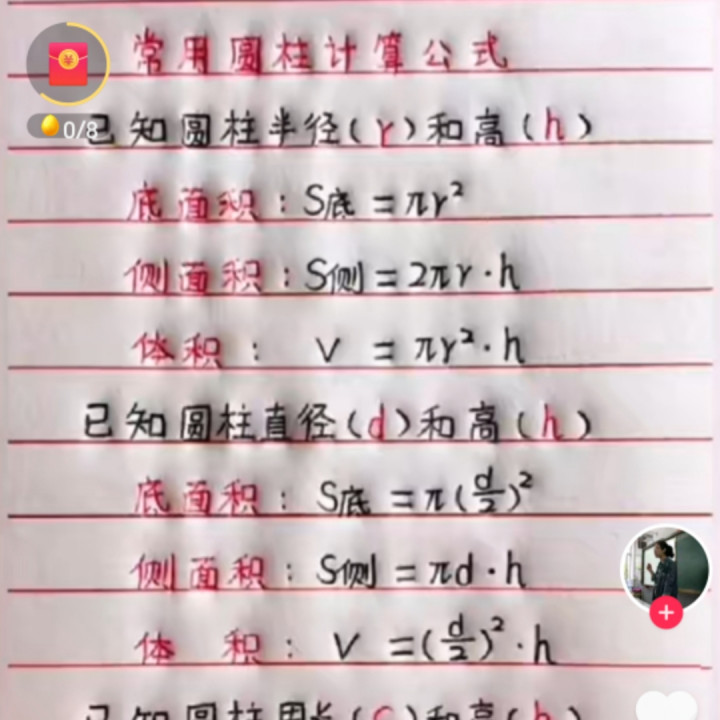 常用圆柱计算公式
0/8
已知圆柱半径(r)和高(h)
底面积:S底=πr²
侧面积:S侧=2πr·h
体积: V =πr²·h
已知圆柱直径(d)和高(h)
底面积:S底=π(d/2)²
侧面积:S侧=πd·h
体 积: V =(d/2)²·h
已知圆柱周长(C)和高(h)